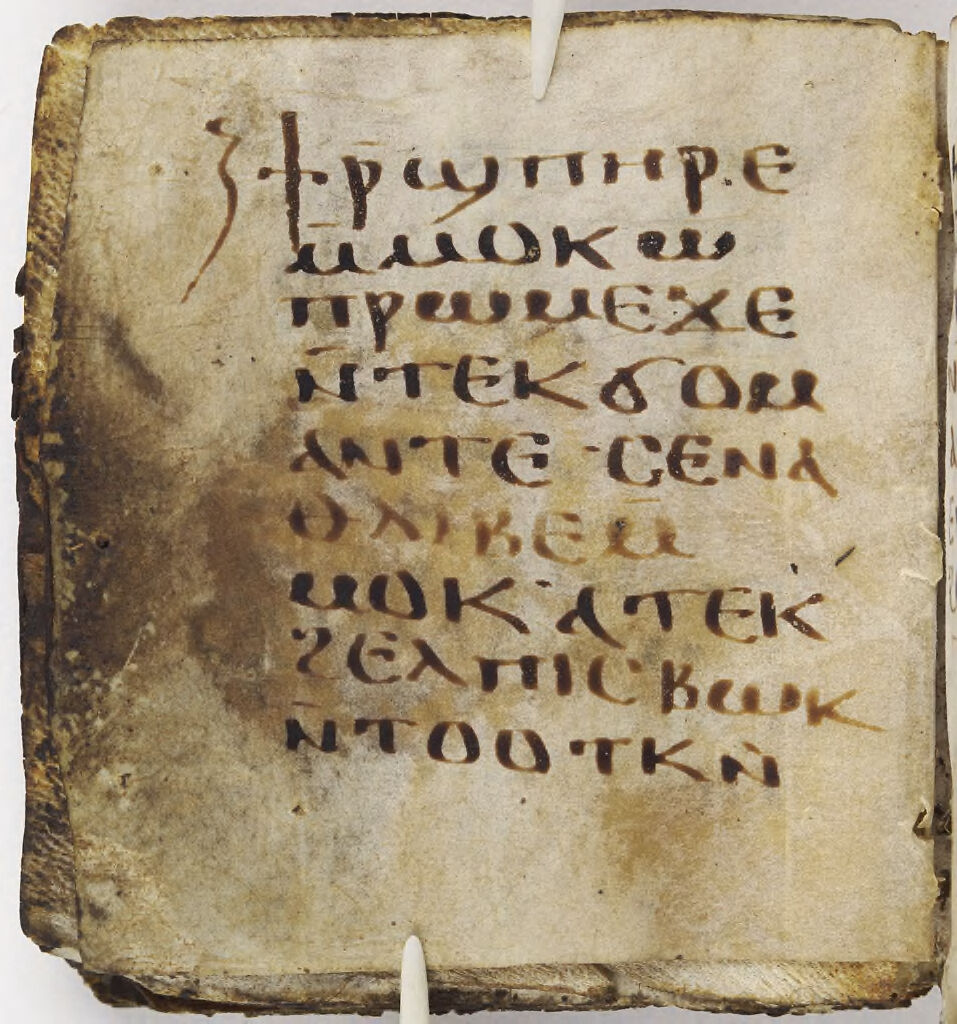 ϯⲣ̄ϣⲡⲏⲣⲉ
ⲙ̄ⲙⲟⲕ ⲱ
ⲡⲣⲱⲙⲉ ϫⲉ
ⲛ̄ⲧⲉⲕϭⲟⲙ
ⲁⲛ ⲧⲉ · ⲥⲉⲛⲁ
ⲑⲗⲓⲃⲉ ⲙ̄
ⲙⲟⲕ · ⲁⲧⲉⲕ
ϩⲉⲗⲡⲓⲥ ⲃⲱⲕ
ⲛ̄ⲧⲟⲟⲧⲕ ⲛ̀